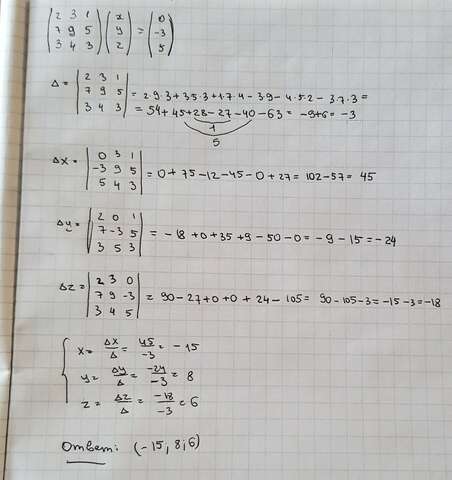 (2 3 1) (x) = (0)
(7 9 5) (y) (-3)
(3 4 3) (z) (5)
Δ = |2 3 1; 7 9 5; 3 4 3| = 2·9·3+3·5·3+1·7·4-3·9-4·5·2-3·7·3=
= 54+45+28-27-40-63= -9+6= -3
1
5
Δx = |0 3 1; -3 9 5; 5 4 3| = 0+75-12-45-0+27= 102-57= 45
Δy = |2 0 1; 7 -3 5; 3 5 3| = -18+0+35+9-50-0= -9-15=-24
Δz = |2 3 0; 7 9 -3; 3 4 5| = 90-27+0+0+24-105= 90-105-3=-15-3=-18
x= Δx/Δ = 45/-3 = -15
y= Δy/Δ = -24/-3 = 8
z = Δz/Δ = -18/-3 = 6
Ответ: (-15, 8, 6)